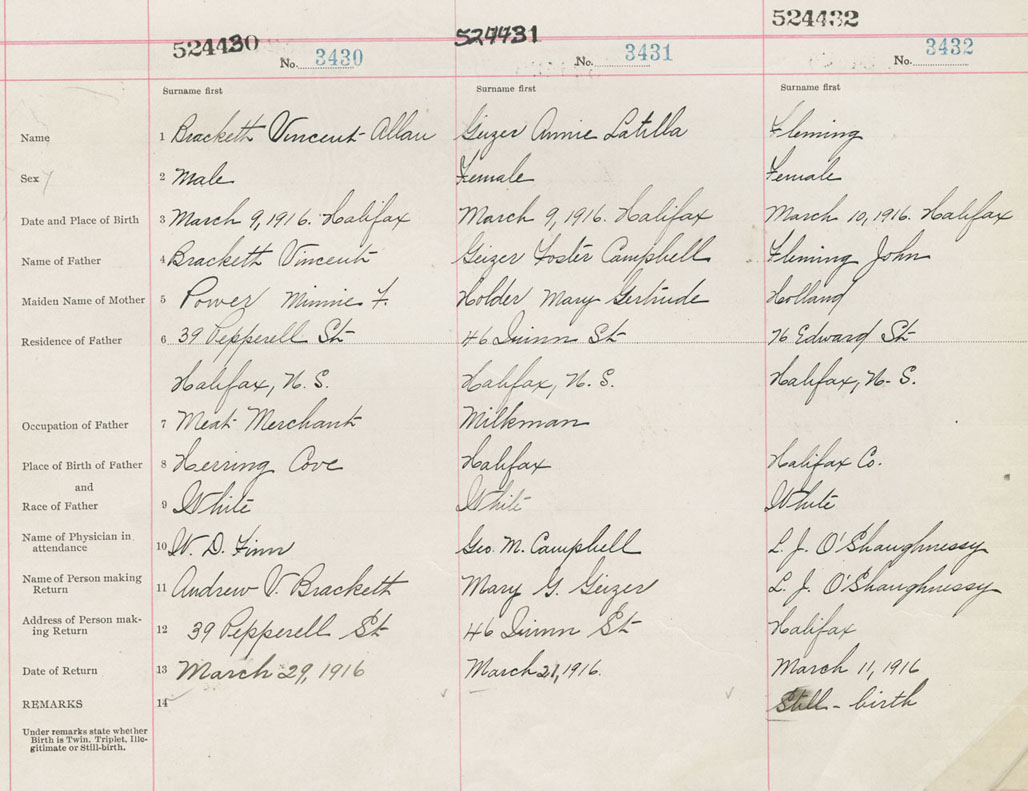 524430 524431 524432
No. 3430 No. 3431 No. 3432
Surname first Surname first Surname first
Name 1 Brackett Vincent Allan Geizer Annie Latilla Fleming
Sex 2 Male Female Female
Date and Place of Birth 3 March 9, 1916. Halifax March 9, 1916. Halifax March 10, 1916. Halifax
Name of Father 4 Brackett Vincent Geizer Foster Campbell Fleming John
Maiden Name of Mother 5 Power Minnie F. Holder Mary Gertrude Holland
Residence of Father 6 39 Pepperell St 46 St 76 Edward St
Halifax, N. S. Halifax, N. S. Halifax, N. S.
Occupation of Father 7 Meat Merchant Milkman
Place of Birth of Father 8 Herring Cove Halifax Halifax Co.
and
Race of Father 9 White White White
Name of Physician in
attendance 10 W. D. Finn Geo. M. Campbell L. J. O'Shaughnessy
Name of Person making
Return 11 Andrew V. Brackett Mary G. Geizer L. J. O'Shaughnessy
Address of Person mak-
ing Return 12 39 Pepperell St 46 St Halifax
Date of Return 13 March 29, 1916 March 21, 1916. March 11, 1916
REMARKS 14 Still - birth
Under remarks state whether
Birth is Twin. Triplet, Ille-
gitimate or Still-birth.